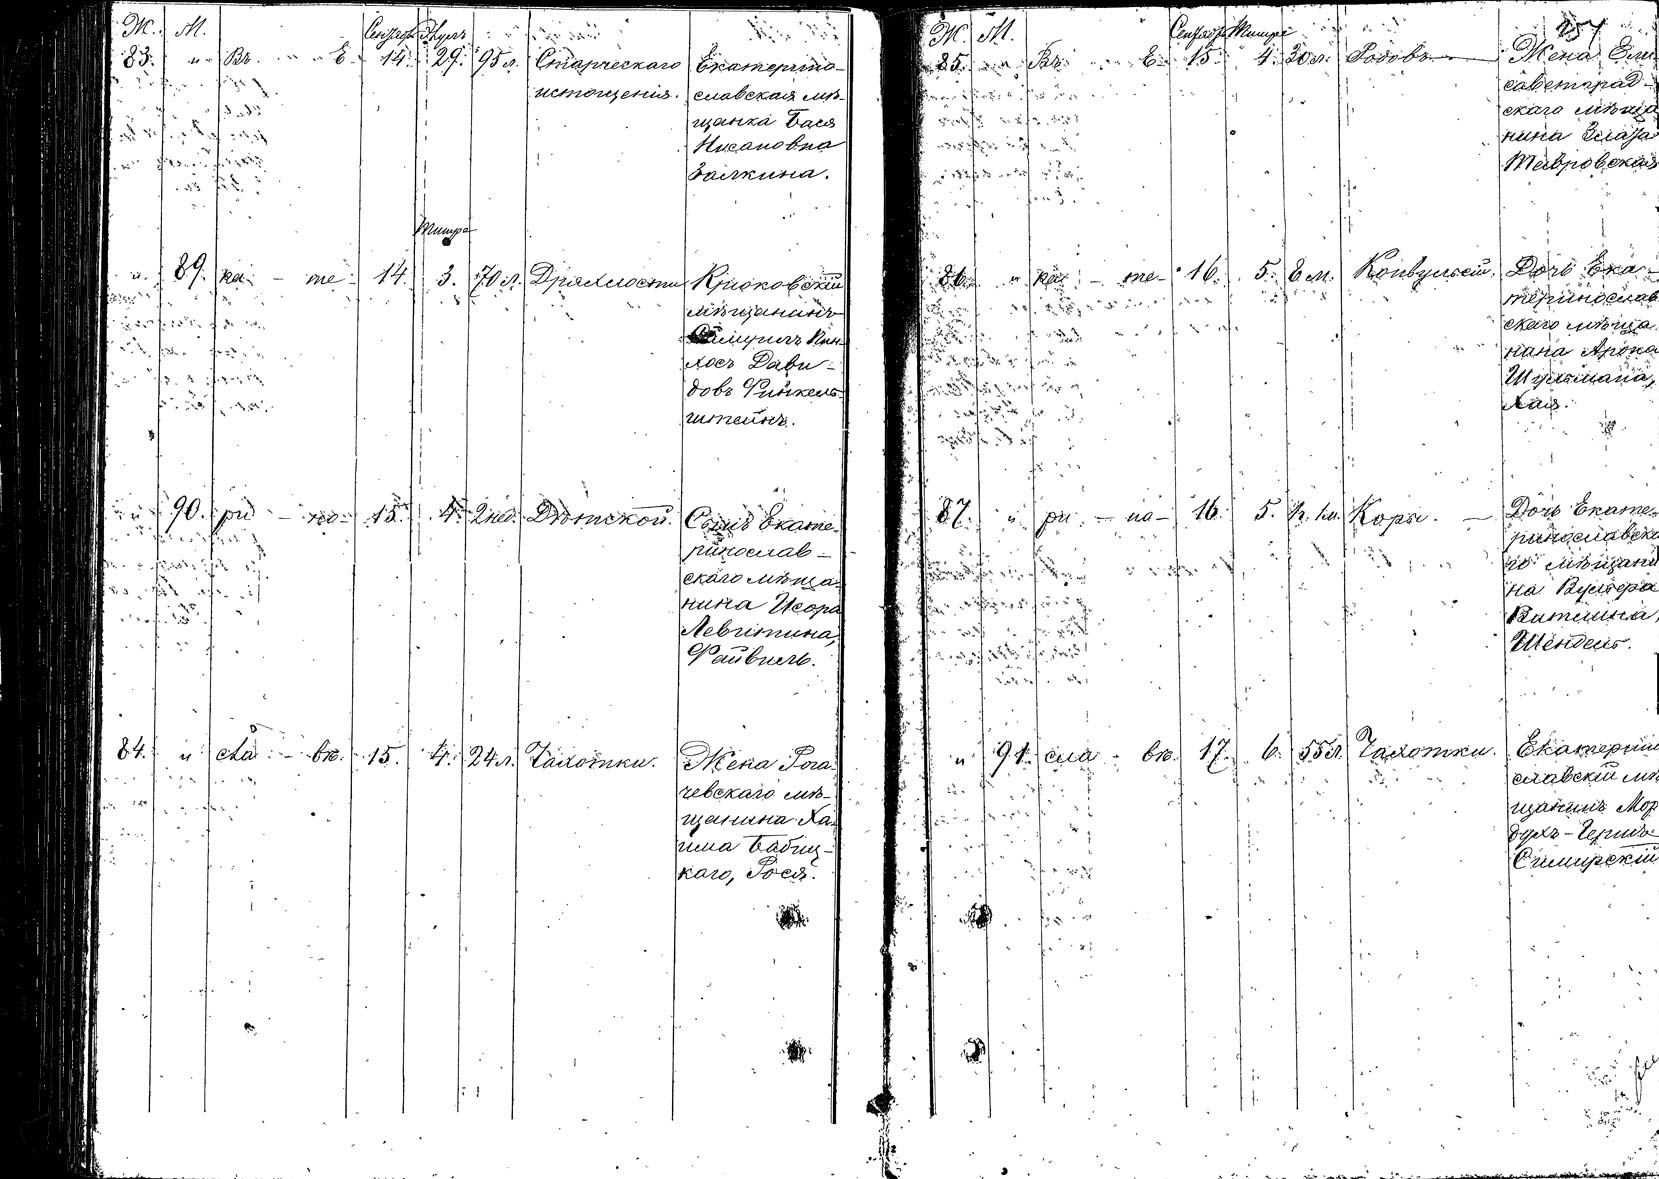 Ж. М.
83. " Въ Е 14. 29. 95 л. Старческаго Екатерино-
истощенія. славская мѣ-
щанка Бася
Нисановна
Залкина.
Тишра
" 89. ка - те - 14. 3. 70 л. Дряхлости Крюковскій
мѣщанинъ
Пин-
хосъ Дави-
довъ Финкель-
штейнъ.
" 90. ри - но - 15. 4. 2 нед. Дѣтской. Сынъ Екате-
ринослав-
скаго мѣща-
нина Исора
Левитина,
Файвель.
84. " сла - вѣ. 15. 4. 24 л. Чахотки. Жена Рога-
чевскаго мѣ-
щанина Ха-
има Бабиц-
каго, Рося.
257
Ж. М.
85. " Въ Е 15. 4. 30 л. Родовъ Жена Ели-
саветград-
скаго мѣща
нина Злата
86. " ка - те - 16. 5. 8 м. Конвульсій. Дочь Ека-
теринослав
скаго мѣща
нина Арона
Шульмана,
Хая.
87. " ри - но - 16. 5. Кори. Дочь Екате-
ринославска
го мѣщани
на Вульфа
Шендель.
" 91. сла - вѣ. 17. 6. 55 л. Чахотки. Екатерино
славскій мѣ
щанинъ Мор
духъ-Гершъ
Симирскій